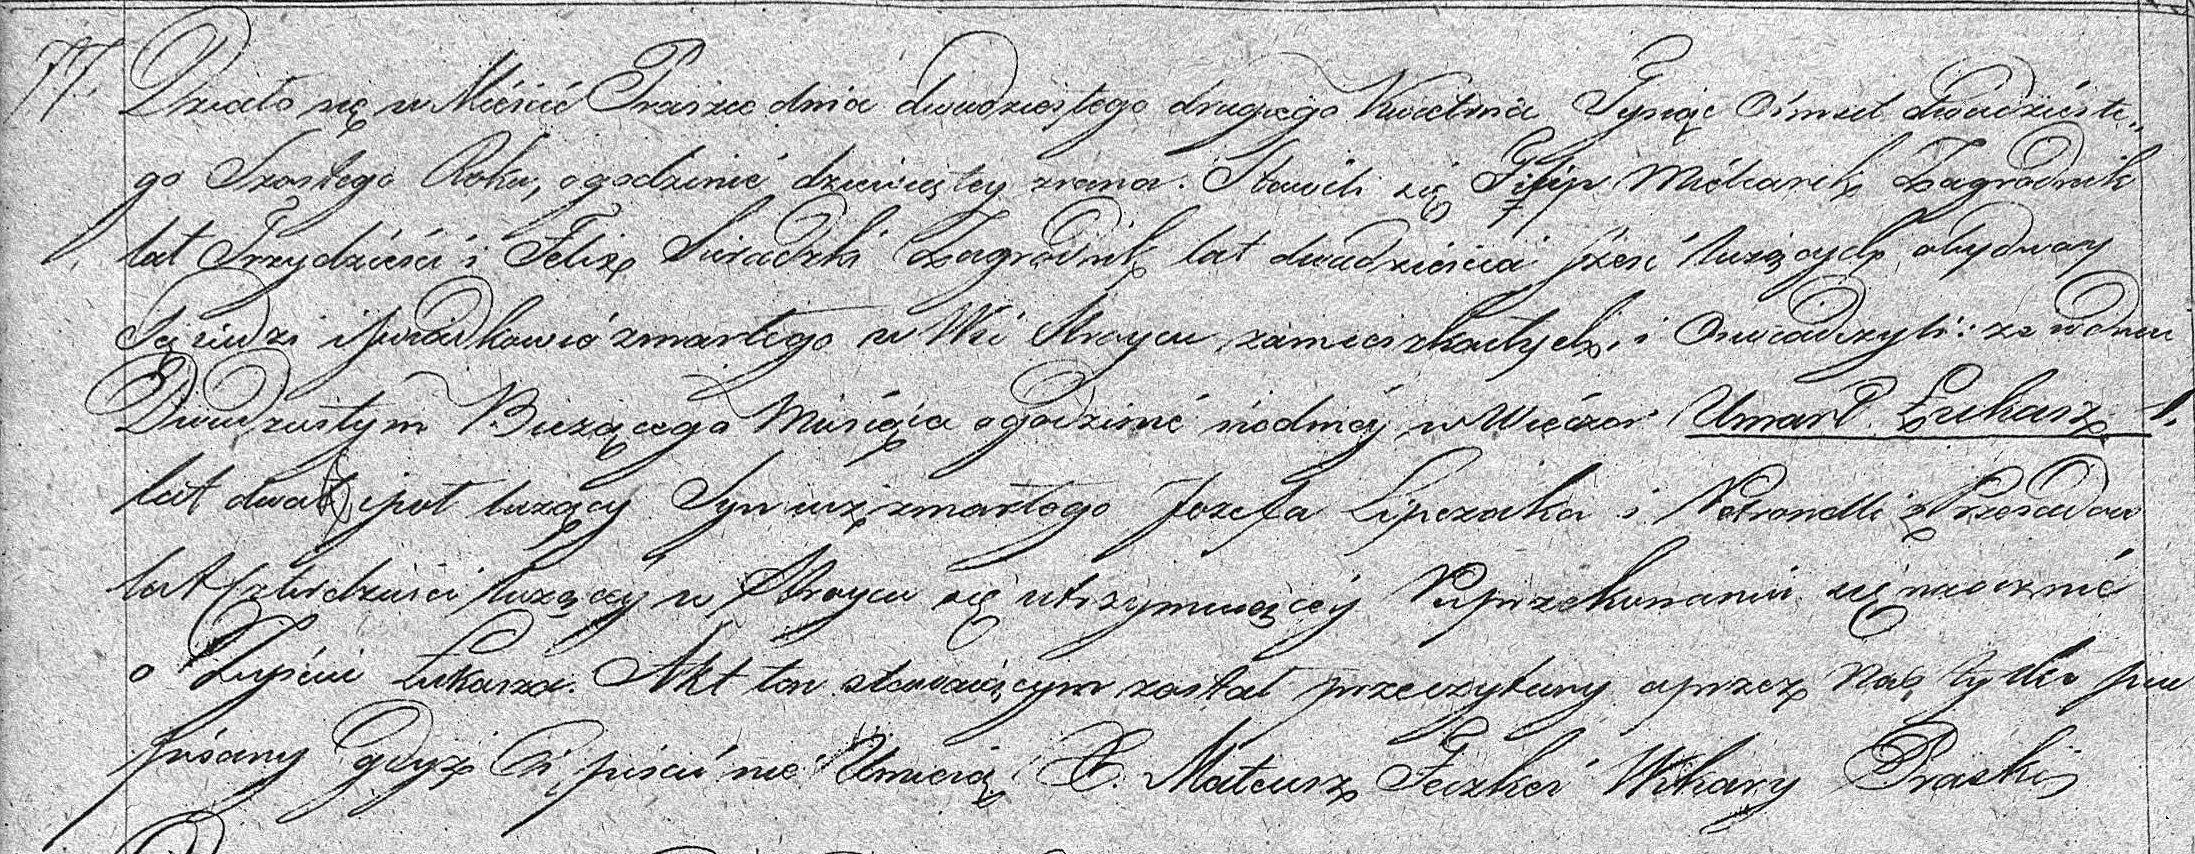 77. Działo się w Mieście Praszce dnia dwudziestego drugiego Kwietnia Tysiąc Ośmset Dwudzieste-
go Szostego Roku, o godzinie dziewiątey zrana. Stawili się Filip Mielcarek Zagrodnik
lat Trzydzieści i Felix Zagrodnik lat dwadzieścia sześć liczących obydway
Sąsiedzi i swiadkowie zmarłego w Wsi Stroycu zamieszkałych, i Oświadczyli: że w dniu
Dwudziestym Bieżącego Miesiąca o godzinie siodmey w Wieczor Umarł Łukasz 1.
lat dwa i puł liczący Syn iuż zmarłego Jozefa Lipczaka i Petronelli z
lat Czterdzieści liczącey w Stroycu się utrzymuiącey Po przekonaniu się naocznie
o Zeyściu Łukasza. Akt ten stawaiącym został przeczytany a przez Nas tylko pod
pisany gdyż Ci pisać nie Umieią X. Mateusz Wikary Praski